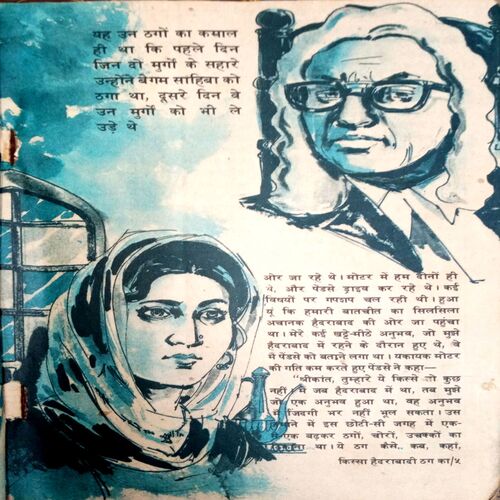 यह उन ठगों का कमाल
ही था कि पहले दिन
जिन दो मुर्गों के सहारे
उन्होंने बेगम साहिबा को
ठगा था, दूसरे दिन वे
उन मुर्गों को भी ले
उड़े थे
ओर जा रहे थे। मोटर में हम दोनों ही
थे, और पेंडसे ड्राइव कर रहे थे। कई
विषयों पर गपशप चल रही थी। हुआ
यूं कि हमारी बातचीत का सिलसिला
अचानक हैदराबाद की ओर जा पहुंचा
था। मेरे कई खट्टे-मीठे अनुभव, जो मुझे
हैदराबाद में रहने के दौरान हुए थे, वे
मैं पेंडसे को बताने लगा था। यकायक मोटर
की गति कम करते हुए पेंडसे ने कहा—
"श्रीकांत, तुम्हारे ये किस्से तो कुछ
नहीं। मैं जब हैदराबाद में था, तब मुझे
जो एक अनुभव हुआ था, वह अनुभव
मैं जिंदगी भर नहीं भूल सकता। उस
जमाने में इस छोटी-सी जगह में एक-
से एक बढ़कर ठगों, चोरों, उचक्कों का
था। ये ठग कैसे, कब, कहां,
किस्सा हैदराबादी ठग का/५